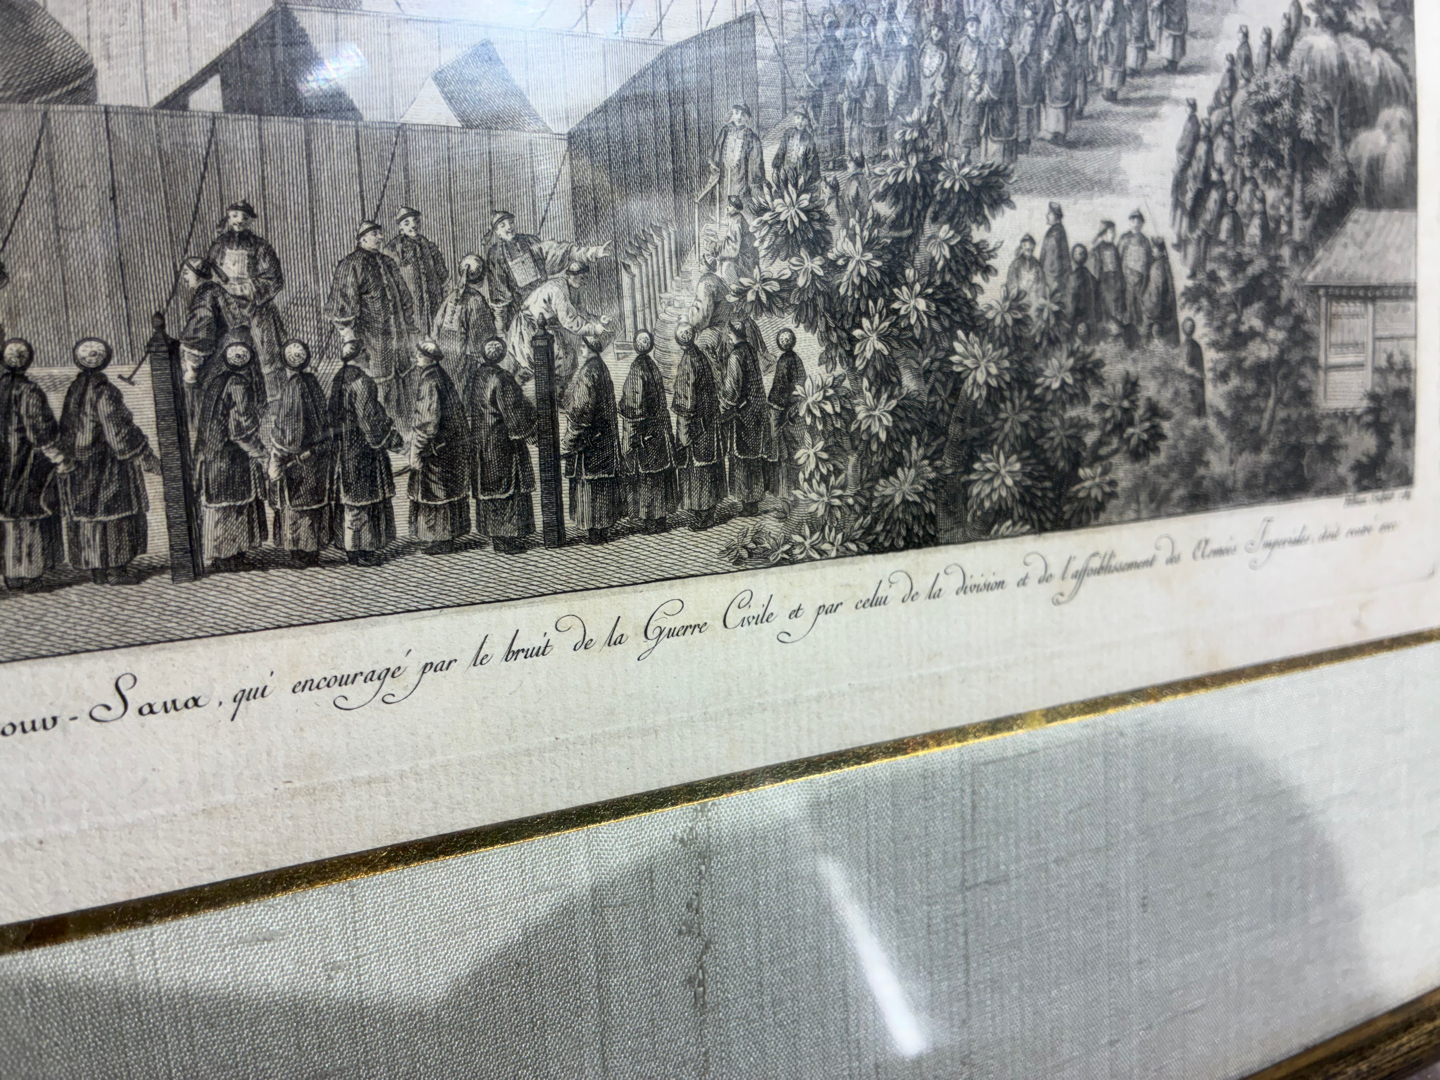 ouv-Sana, qui encouragé par le bruit de la Guerre Civile et par celui de la division et de l'affoiblissement des Armées Imperiales, étoit rentré avec